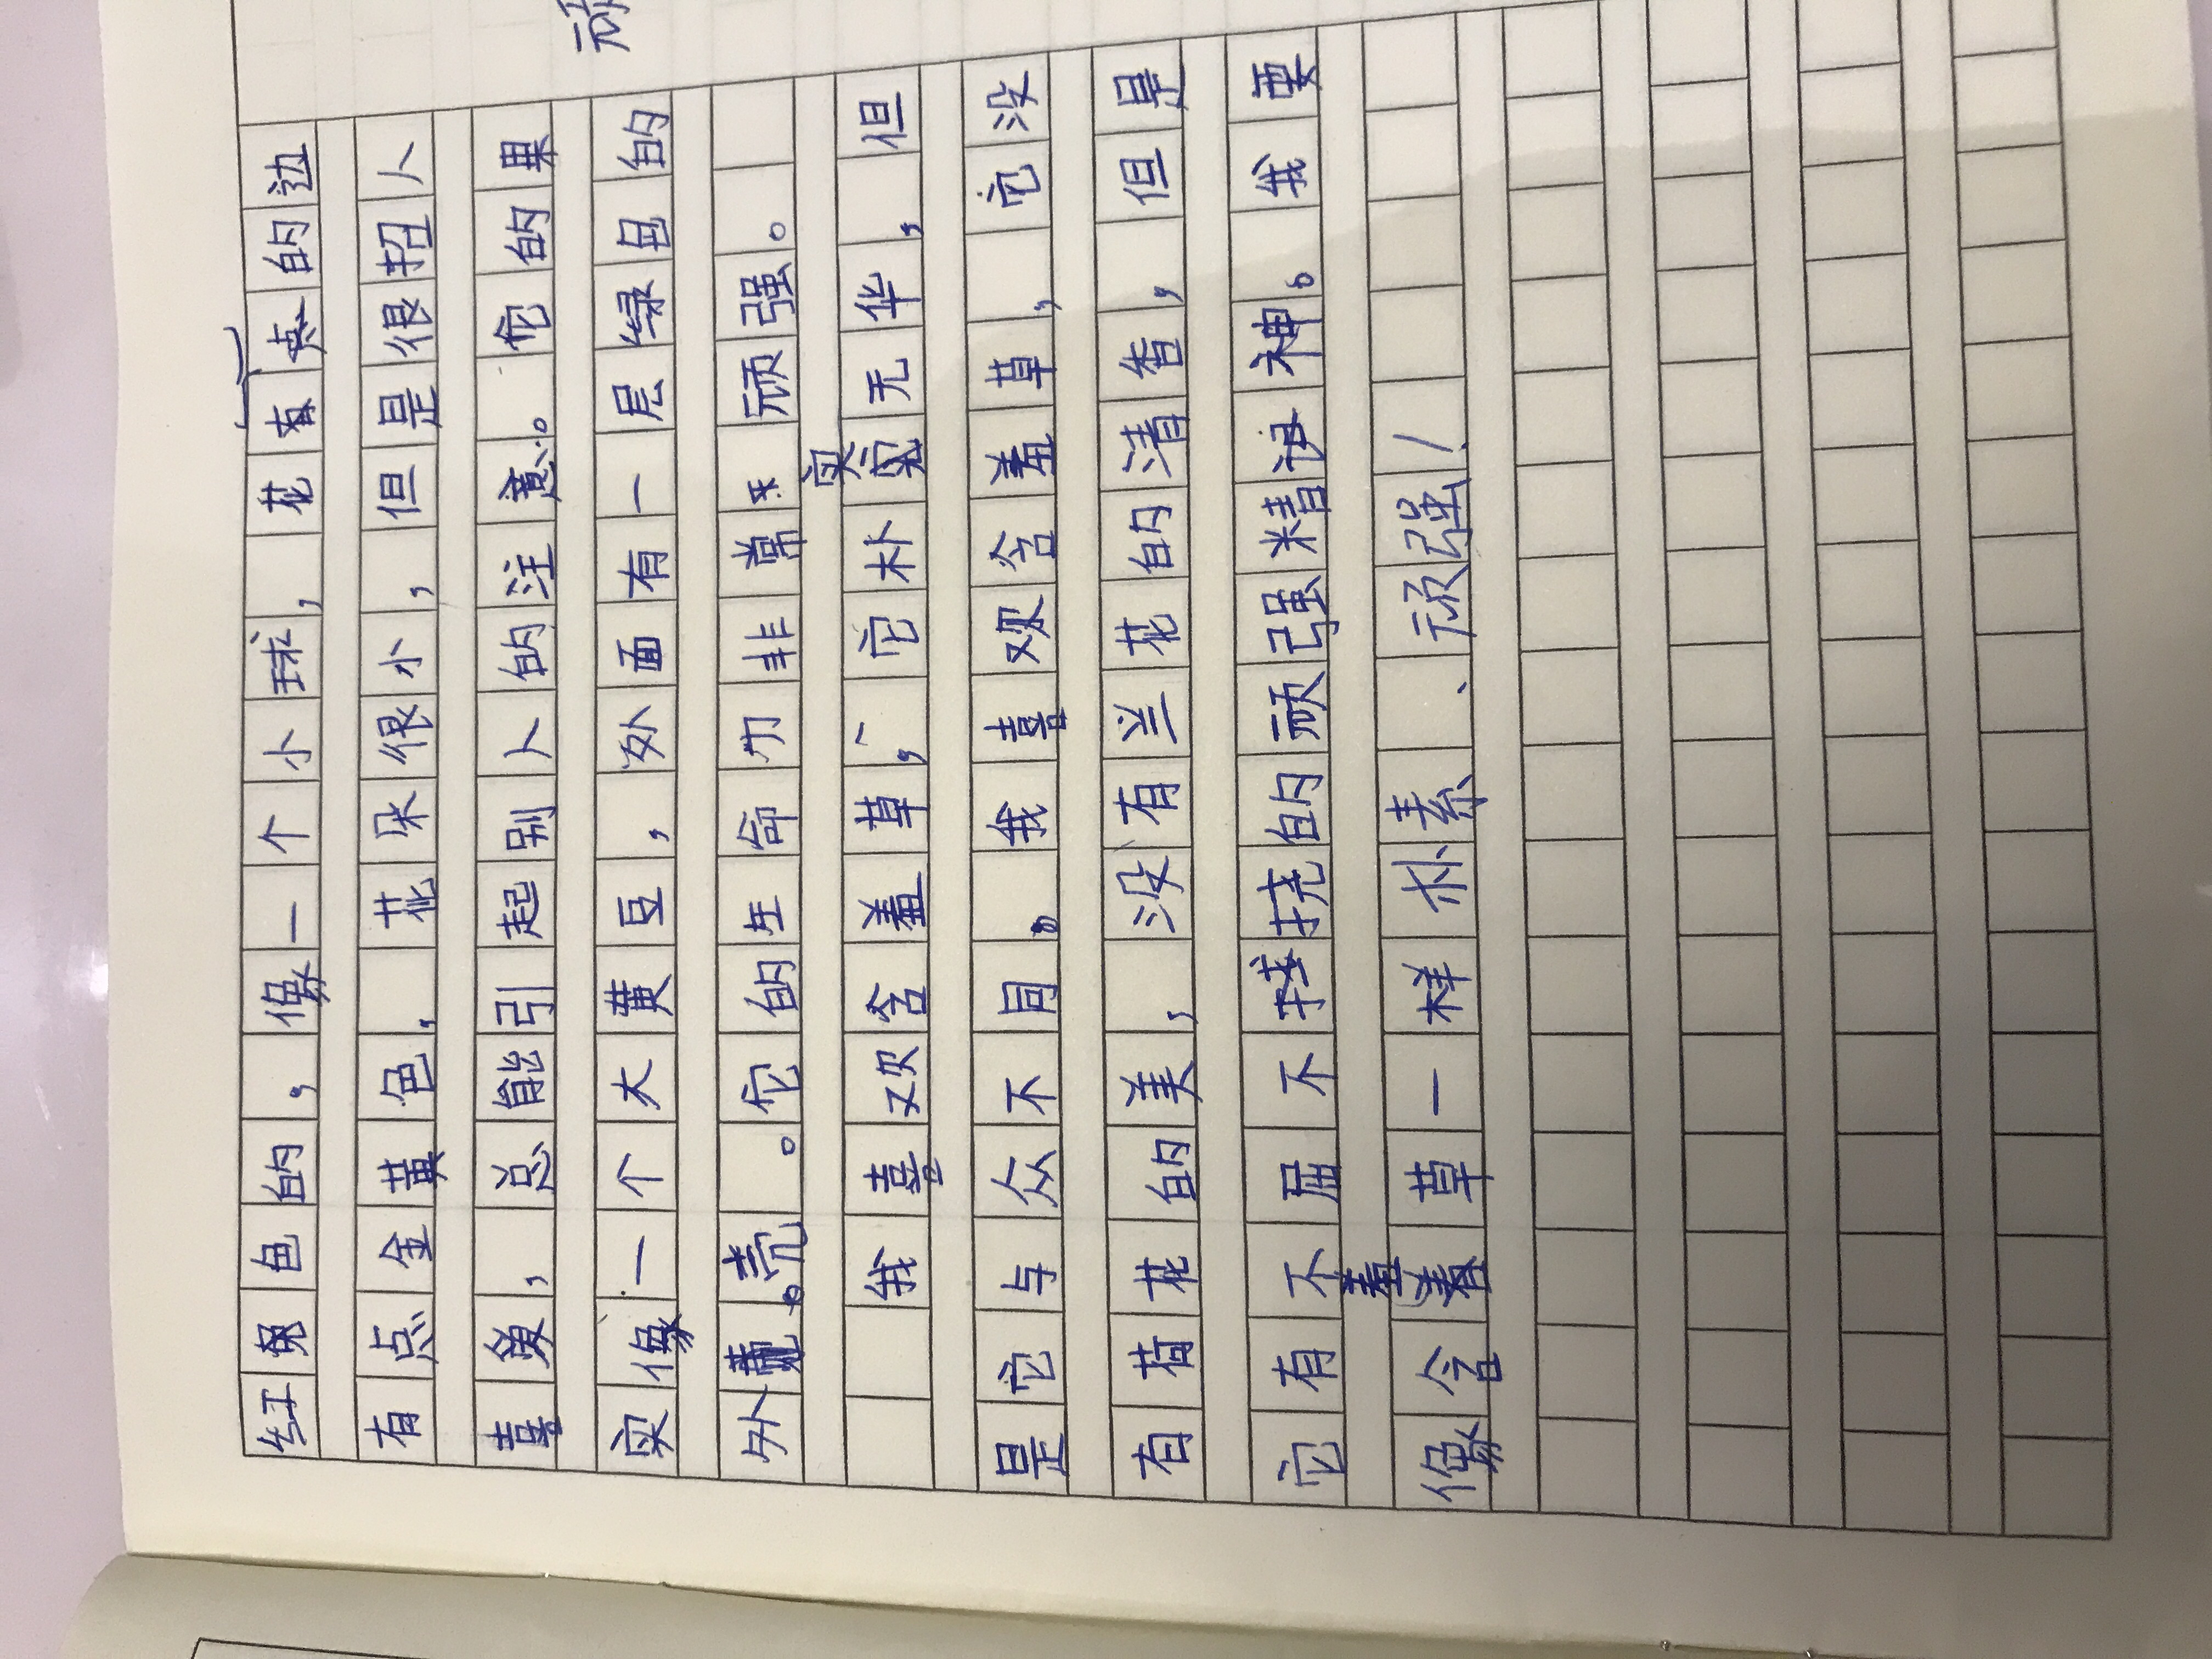 红色的，像一个小球，花的边
有点金黄色，花朵很小，但是很招人
喜爱，总能引起别人的注意。它的果
实像一个大黄豆，外面有一层绿色的
外壳。它的生命力非常顽强。
我喜欢含羞草，它朴实无华，但
是它与众不同。我喜欢含羞草，它没
有荷花的美，没有兰花的清香，但是
它有不屈不挠的顽强精神。我要
像含羞草一样朴素、顽强！